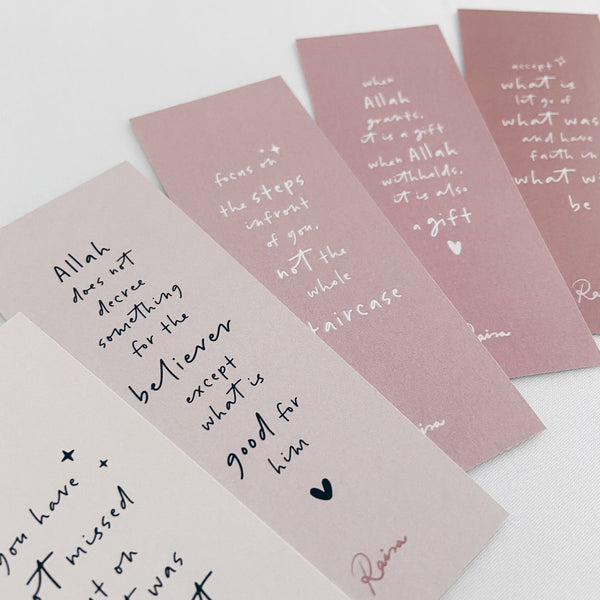 you have
missed
on
was
Allah
does not
decree
something
for the
believer
except
what is
good for
him
Raisa
focus on
the steps
infront
of you,
not the
whole
staircase
when
Allah
grants,
it is a gift
when Allah
withholds,
it is also
a gift
Raisa
accept
what is
let go of
what was
and have
faith in
what
be